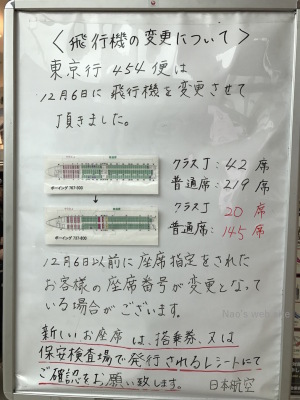 〈飛行機の変更について〉
東京行 454便は
12月6日に 飛行機を変更させて
頂きました。
ボーイング 767-300
クラスJ：42 席
普通席：219 席
クラスJ 20 席
普通席：145 席
12月6日以前に座席指定をされた
お客様の座席番号が変更となって
いる場合がございます。
新しいお座席は、搭乗券、又は
保安検査場で発行されるレシートにて
ご確認をお願い致します。
日本航空